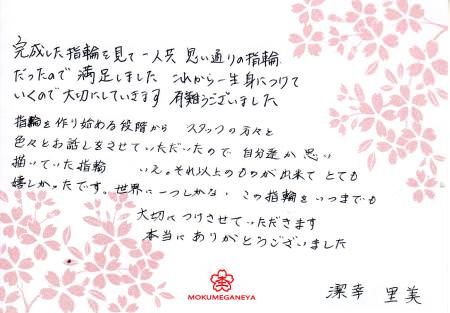 完成した指輪を見て二人共 思い通りの指輪
だったので満足しました これから一生身につけて
いくので大切にしていきます 有難うございました
指輪を作り始める段階から スタッフの方々と
色々とお話しをさせていただいたので 自分達が思い
描いていた指輪 いえ。それ以上のものが出来て とても
嬉しかったです。世界に一つしかない この指輪をいつまでも
大切につけさせていただきます
本当にありがとうございました
MOKUMEGANEYA
潔幸 里美